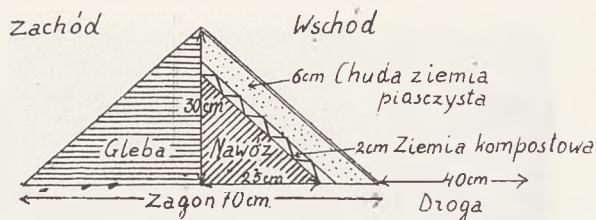 Zachód
Wschód
6cm Chuda ziemia
piasczysta
30cm
Gleba
Nawóz
2cm Ziemia kompostowa
25cm
40cm
Zagon 70cm.
Droga